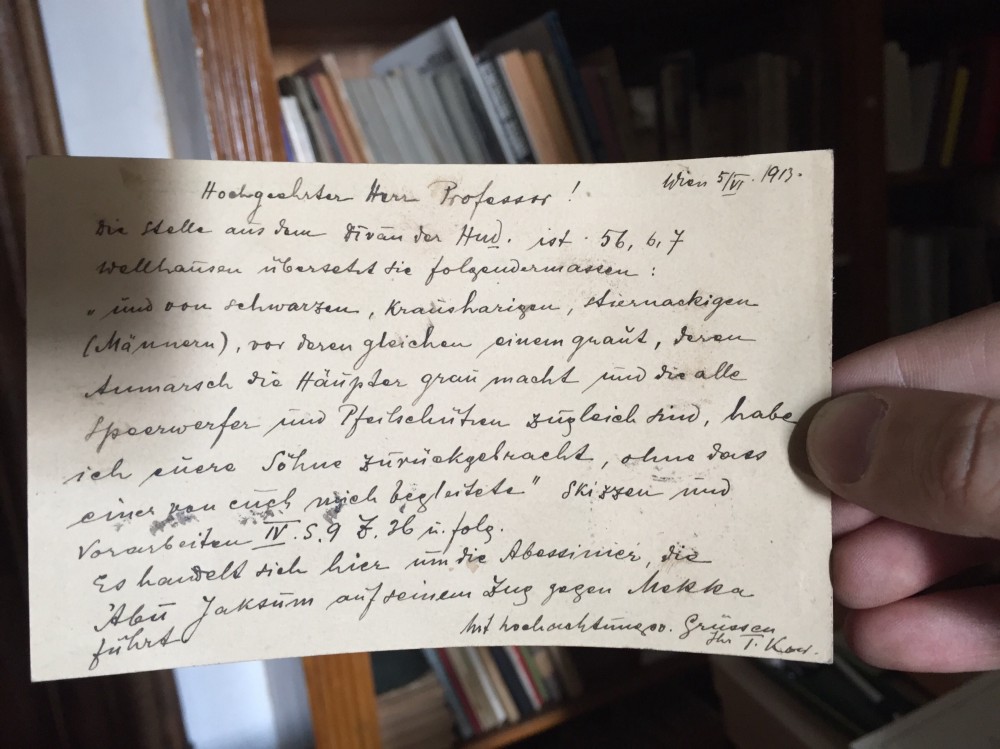 Wien 5/VI. 1913.
Hochgeehrter Herr Professor!
Die Stelle aus dem Dīvān der Hud. ist 56, 6, 7
Wellhausen übersetzt sie folgendermassen:
„und von schwarzen, kraushaarigen, stiernackigen
(Männern), vor deren gleichen einem graut, deren
Anmarsch die Häupter grau macht und die alle
Speerwerfer und Pfeilschützen zugleich sind, habe
ich euere Söhne zurückgebracht, ohne dass
einer von euch mich begleitete" Skizzen und
Vorarbeiten IV. S. 9 Z. 36 u. folg.
Es handelt sich hier um die Abessinier, die
'Abū Jaksūm auf seinem Zug gegen Mekka
führt
Mit hochachtungsv. Grüssen
Ihr